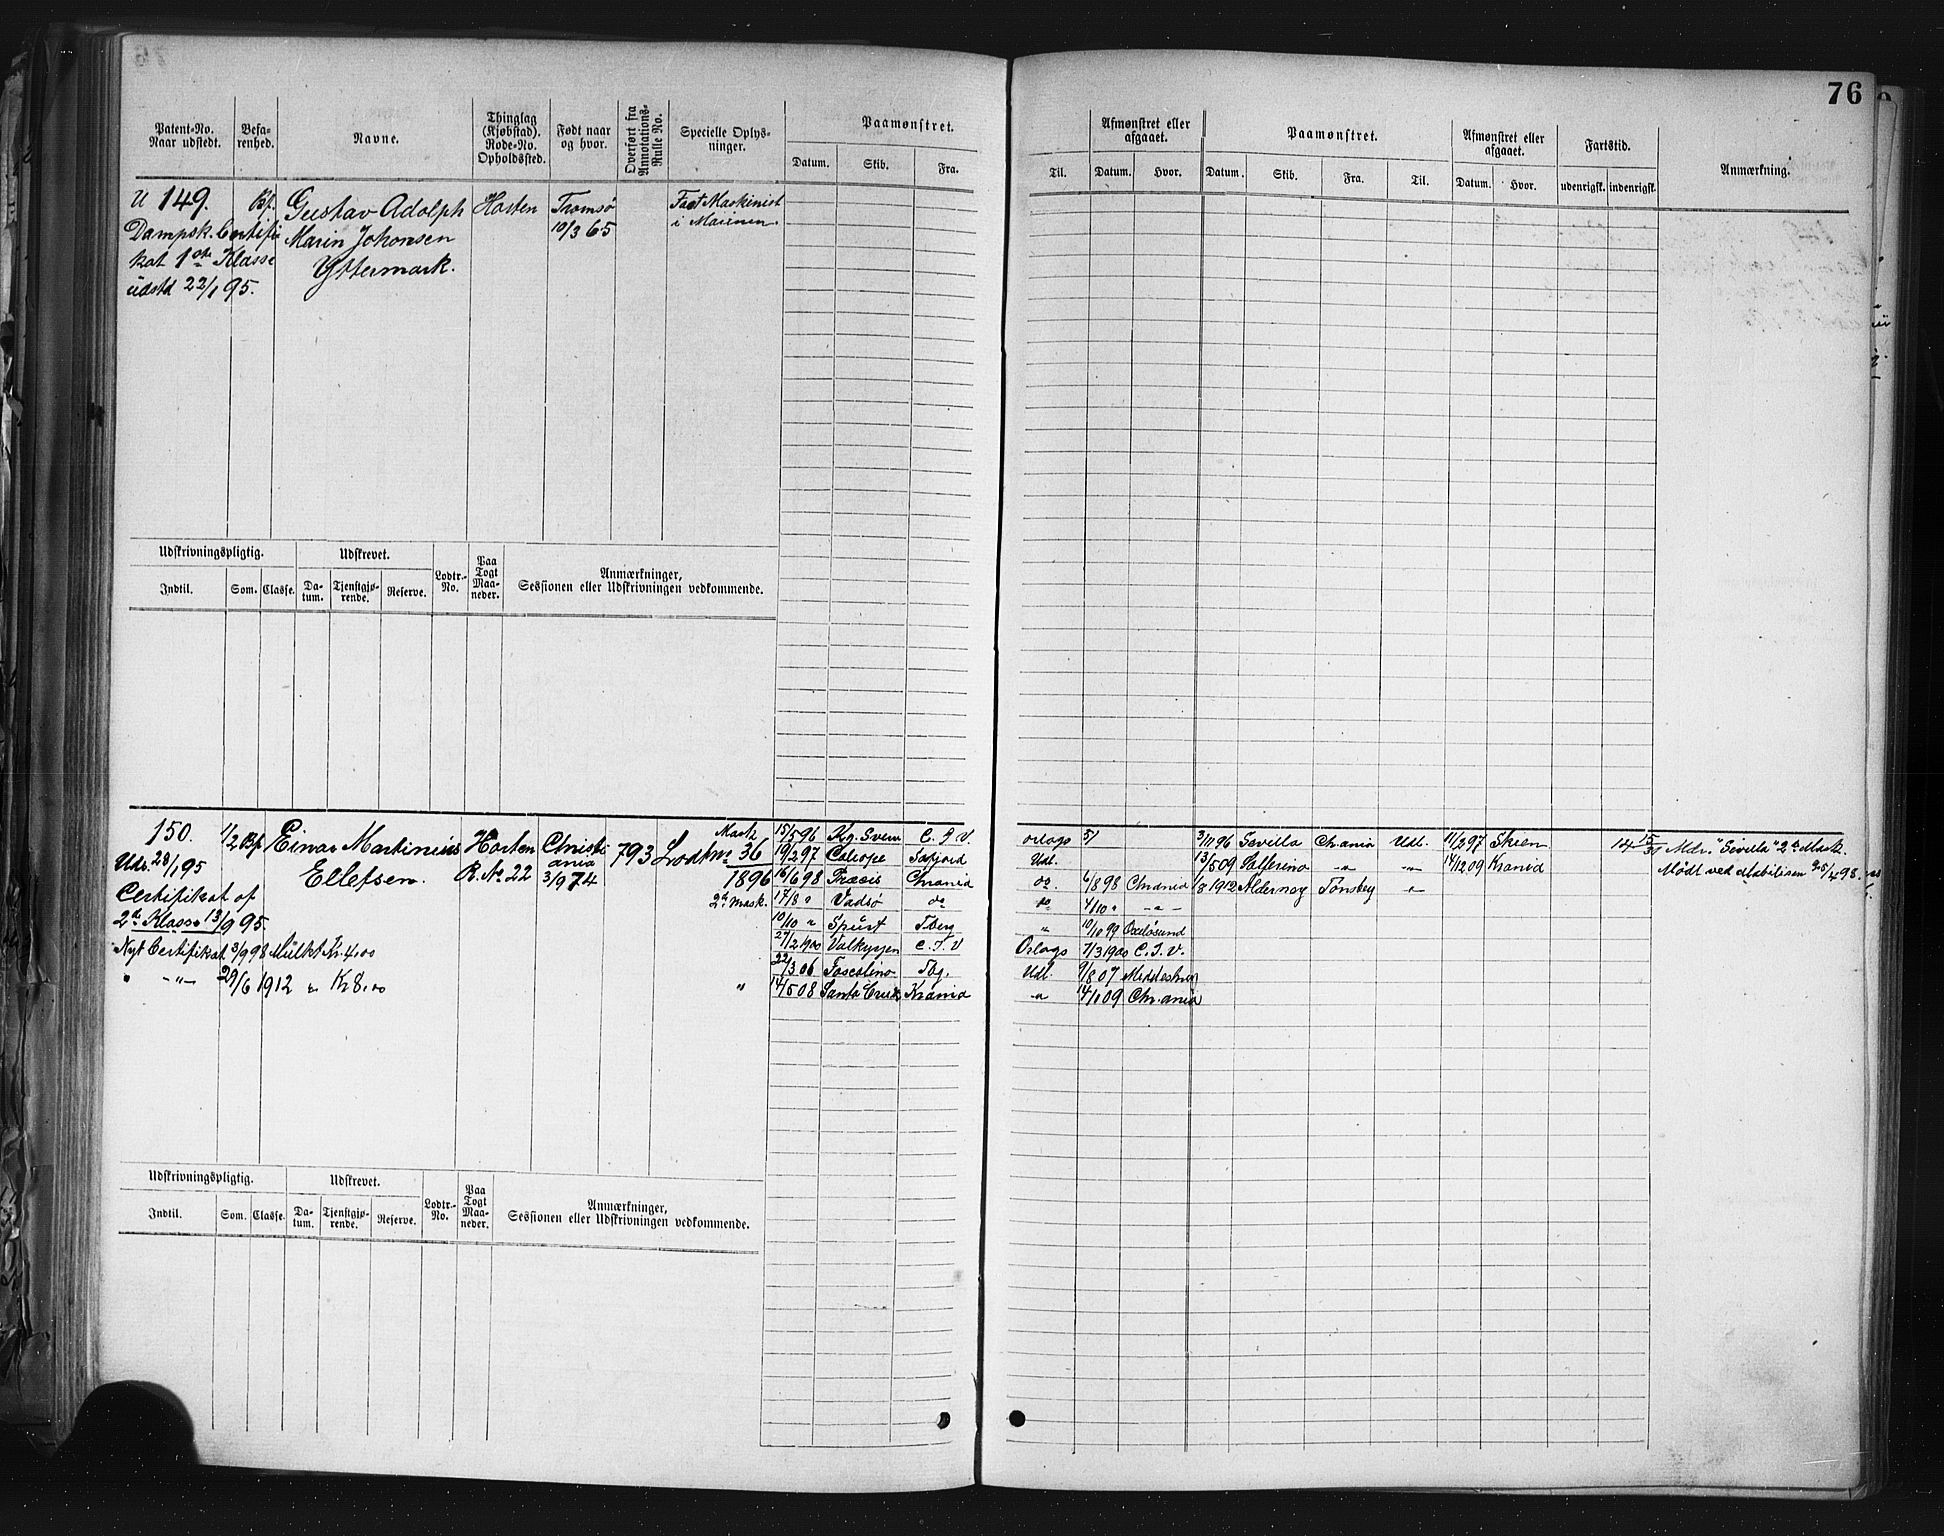 76
Patent-No.
Naar udstedt.
Befa-
renhed.
Navne.
Thinglag
(Kjøbstad).
Rode-No.
Opholdssted.
Født naar
og hvor.
Overført fra
Annotations-
Rulle No.
Specielle Oplys-
ninger.
Paamønstret.
Datum.
Skib.
Fra.
Til.
Afmønstret eller
afgaaet.
Datum.
Hvor.
Paamønstret.
Datum.
Skib.
Fra.
Til.
Afmønstret eller
afgaaet.
Datum.
Hvor.
Fartstid.
udenrigsk.
indenrigsk.
Anmærkning.
U 149.
Dampsk. Certifi
kat 1ste Klasse
udstd 22/1 95.
Bf.
Gustav Adolph
Marin Johansen
Yttermark.
Horten
Tromsø
10/3 65
Fast Maskinist
i Marinen
Udskrivningspligtig.
Udskrevet.
Lodtr.-
No.
Paa
Togt
Maa-
neder.
Anmærkninger,
Sessionen eller Udskrivningen vedkommende.
Indtil.
Som.
Classe.
Da-
tum.
Tjenstgjø-
rende.
Reserve.
150.
Uds. 28/1 95
Certifikat af
2den Klasse 13/9 95.
Nyt Certifikat 3/9 98 Mulkt Kr. 4.00
" -"- 29/6 1912 " Kr 8.00
1/2 Bf
Einar Martinius
Ellefsen.
Horten
R. No 22
Christi
ania
3/9 74
793
Lodtrn 36
1896
Mask
2d Mask.
"
15/5 96 Kg. Sverre C. J. V. Orlogs 5/
19/2 97 Caliope Udl.
16/6 98 Præsis Chrania do. 6/8 98 Chrania
17/8 " Vadsø do do 4/10 " -"-
10/10 " Spurt Tberg " 10/10 99 Oxeløsund
27/2 1900 Valkyrjen C. J. V Orlogs 7/3 1900 C. J. V.
22/3 06 Toscolino Tbg. Udl. 9/8 07
14/5 08 Santa Cruz Krania -" 14/1 09 Chr.ania
3/11 96 Sevilla Chrania Udl. 11/2 97 Skien
13/5 09 Solferino -"- -"- 14/12 09 Krania
1/8 1912 Alderney Tønsberg "
14 15/30 Mdr. "Sevilla" 2den Mask.
Mødt ved
Udskrivningspligtig.
Udskrevet.
Lodtr.-
No.
Paa
Togt
Maa-
neder.
Anmærkninger,
Sessionen eller Udskrivningen vedkommende.
Indtil.
Som.
Classe.
Da-
tum.
Tjenstgjø-
rende.
Reserve.